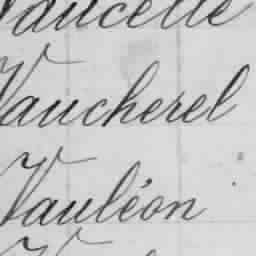 Vaucelle
Vaucherel
Vauléon